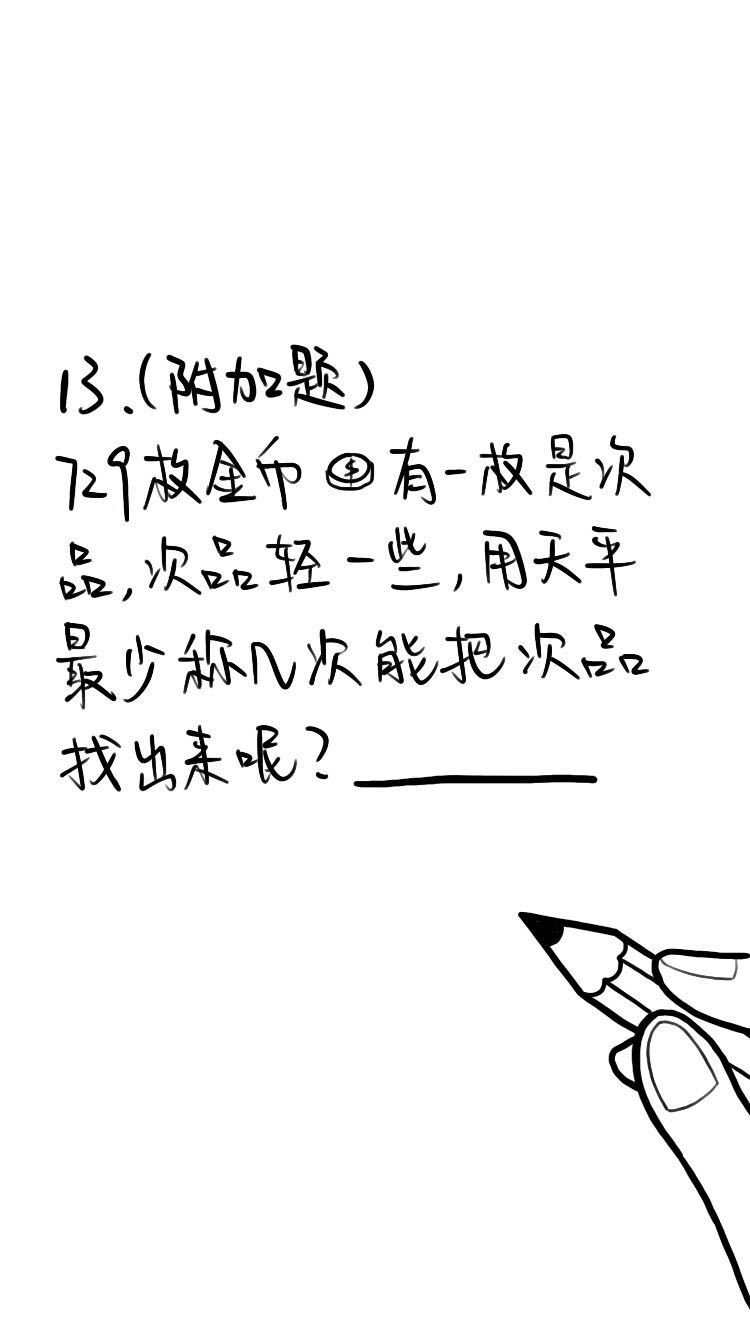 13.(附加题)
729枚金币 $ 有一枚是次
品,次品轻一些,用天平
最少称几次能把次品
找出来呢?